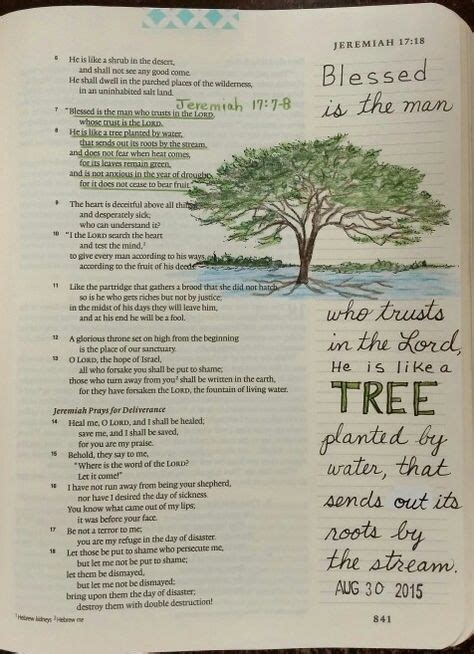 JEREMIAH 17:18
6 He is like a shrub in the desert,
and shall not see any good come.
He shall dwell in the parched places of the wilderness,
in an uninhabited salt land.
Jeremiah 17:7-8
7 "Blessed is the man who trusts in the LORD,
whose trust is the LORD.
8 He is like a tree planted by water,
that sends out its roots by the stream,
and does not fear when heat comes,
for its leaves remain green,
and is not anxious in the year of drought,
for it does not cease to bear fruit."
9 The heart is deceitful above all things,
and desperately sick;
who can understand it?
10 "I the LORD search the heart
and test the mind,2
to give every man according to his ways,
according to the fruit of his deeds."
11 Like the partridge that gathers a brood that she did not hatch,
so is he who gets riches but not by justice;
in the midst of his days they will leave him,
and at his end he will be a fool.
12 A glorious throne set on high from the beginning
is the place of our sanctuary.
13 O LORD, the hope of Israel,
all who forsake you shall be put to shame;
those who turn away from you3 shall be written in the earth,
for they have forsaken the LORD, the fountain of living water.
Jeremiah Prays for Deliverance
14 Heal me, O LORD, and I shall be healed;
save me, and I shall be saved,
for you are my praise.
15 Behold, they say to me,
"Where is the word of the LORD?
Let it come!"
16 I have not run away from being your shepherd,
nor have I desired the day of sickness.
You know what came out of my lips;
it was before your face.
17 Be not a terror to me;
you are my refuge in the day of disaster.
18 Let those be put to shame who persecute me,
but let me not be put to shame;
let them be dismayed,
but let me not be dismayed;
bring upon them the day of disaster;
destroy them with double destruction!
1 Hebrew kidneys 2 Hebrew me
Blessed
is the man
who trusts
in the Lord,
He is like a
TREE
planted by
water, that
sends out its
roots by
the stream.
AUG 30 2015
841